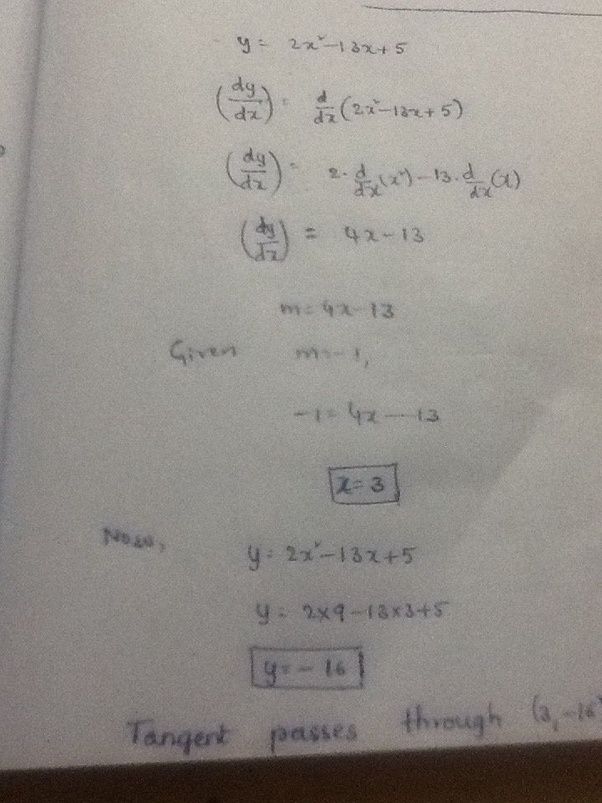 y = 2x²-13x+5
(dy/dx) = d/dx (2x²-13x+5)
(dy/dx) = 2·d/dx(x²) - 13·d/dx(x)
(dy/dx) = 4x-13
m = 4x-13
Given m=-1,
-1 = 4x-13
x=3
Now, y = 2x²-13x+5
y = 2x9-13x3+5
y=-16
Tangent passes through (3,-16)